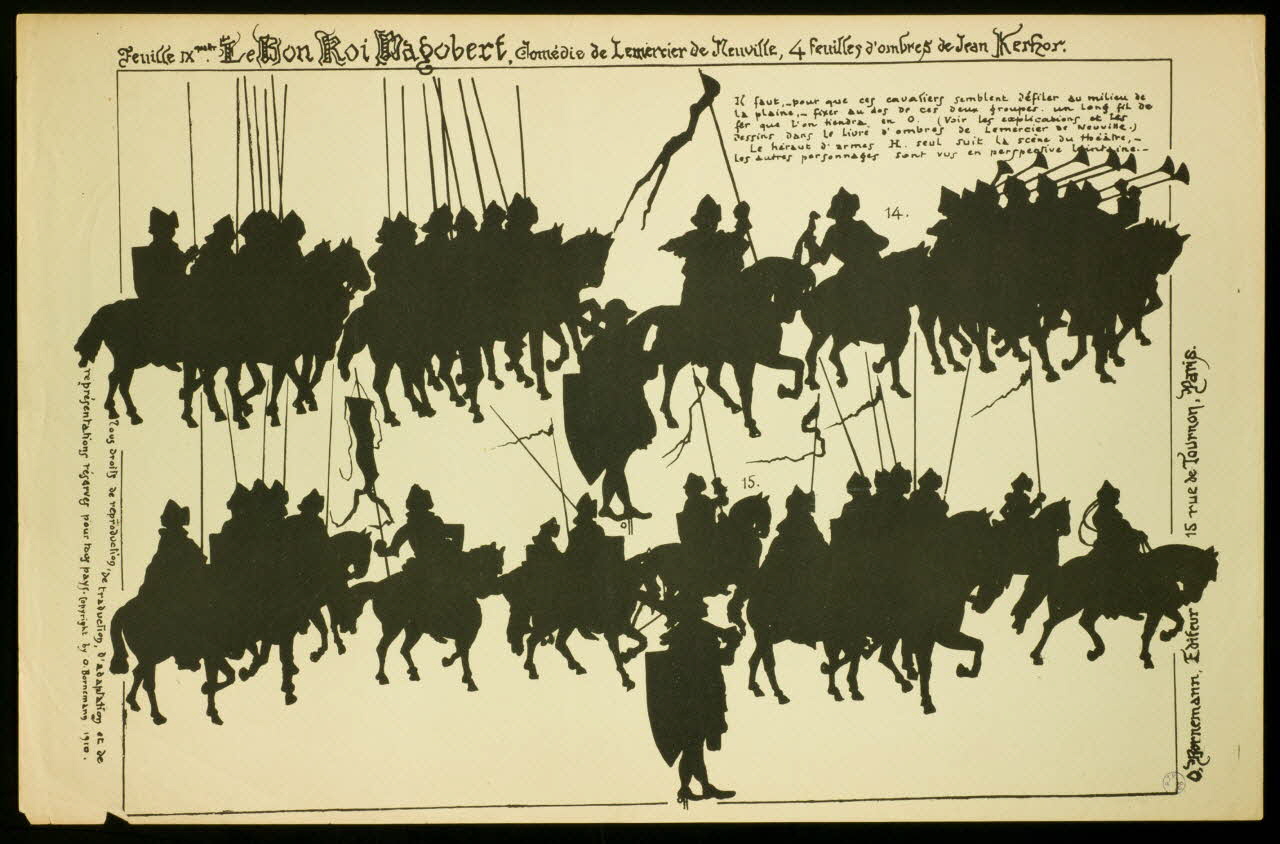 Feuille IX Le Bon Roi Dagobert, Comédie de Lemercier de Neuville, 4 feuilles d'ombres de Jean Kerhor.
Il faut,_pour que ces cavaliers semblent défiler au milieu de
la plaine,_ fixer au dos de ces deux groupes un long fil de
fer que l'on tiendra en O. (Voir les explications et les
dessins dans le livre d'ombres de Lemercier de Neuville.)
Le héraut d'armes H. seul suit la scène du théâtre,_
les autres personnages sont vus en perspective lointaine._
14.
15.
Tous droits de reproduction, de traduction, d'adaptation et de
représentations réservés pour tous pays. Copyright by O. Bornemann 1910.
O. Bornemann, Editeur 15 rue de Tournon, Paris.